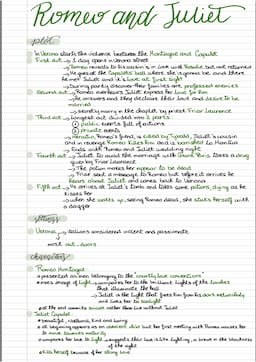 Romeo and Juliet
plot
In Verona starts the violence between the Montague and Capulet
First act → 1 day spend in Verona street
→ Romeo reveals to his cousin is in love with Rosalid but not returned
→ He goes at the Capulets' ball where she is gonna be and there he met Juliet and it's love at first sight
→ During party discover their families are professed enemies
Second act → Romeo overhears Juliet express her love for him
→ He answers and they declare their love and desire to be married
→ secretly marry in the chapel by priest Friar Laurence
Third act → longest act divided into 2 parts:
① public events full of actions
② private events
→ Mercutio, Romeo's friend, is killed by Tybald, Juliet's cousin and in revenge Romeo kills him and is banished to Mantua
→ Ends with Romeo and Juliet wedding night
Fourth act → Juliet to avoid the marriage with Count Paris takes a drug given by Friar Laurence
→ The potion makes her appear to be dead
→ Friar send a message to Romeo but before it arrives he hears about Juliet and comes back to Verona
Fifth act → He arrives at Juliet's tomb and takes some potions, dying as he kisses her
→ when she wakes up, seeing Romeo dead, she stabs herself with a dagger
setting
Verona → italians considered violent and passionate
most out-doors
characters
Romeo Montague:
• presented as man belonging to the "courtly love conventions"
• uses image of light → compares her to the brilliant lights of the torches that illuminate the ball
→ Juliet is the light that frees him from his dark melancholy and takes her to sunlight
• at the end commits suicide rather than live without Juliet
Juliet Capulet:
• beautiful, rational, kind and loving
• at beginning appears as an obedient child but first meeting with Romeo moves her to more towards maturity
• compares to light → suggests their love is like lightning, a break in the blackness of the night
• kills herself because of her strong love